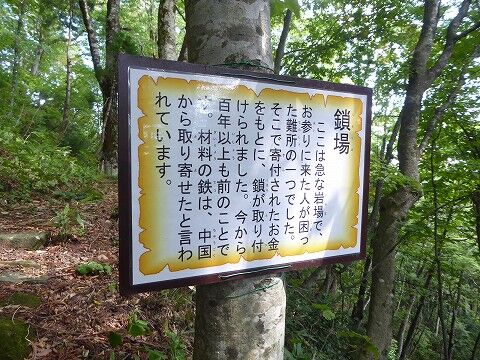 鎖場
ここは急な岩場で、
お参りに来た人が困っ
た難所の一つでした。
そこで寄付されたお金
をもとに、鎖が取り付
けられました。今から
百年以上も前のことで
す。材料の鉄は、中国
から取り寄せたと言わ
れています。